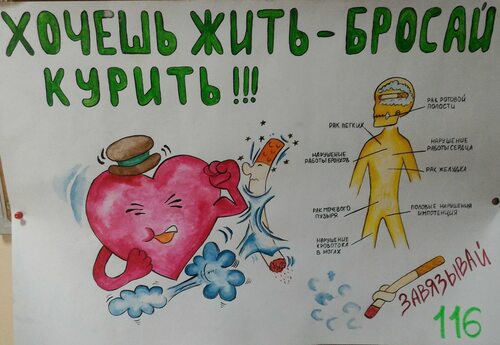 ХОЧЕШЬ ЖИТЬ - БРОСАЙ
КУРИТЬ!!!
РАК РОТОВОЙ
ПОЛОСТИ
РАК ЛЕГКИХ
НАРУШЕНИЕ
РАБОТЫ СЕРДЦА
НАРУШЕНИЕ
РАБОТЫ БРОНХОВ
РАК ЖЕЛУДКА
РАК МОЧЕВОГО
ПУЗЫРЯ
ПОЛОВЫЕ НАРУШЕНИЯ
ИМПОТЕНЦИЯ
НАРУШЕНИЕ
КРОВОТОКА
В НОГАХ
ЗАВЯЗЫВАЙ
116